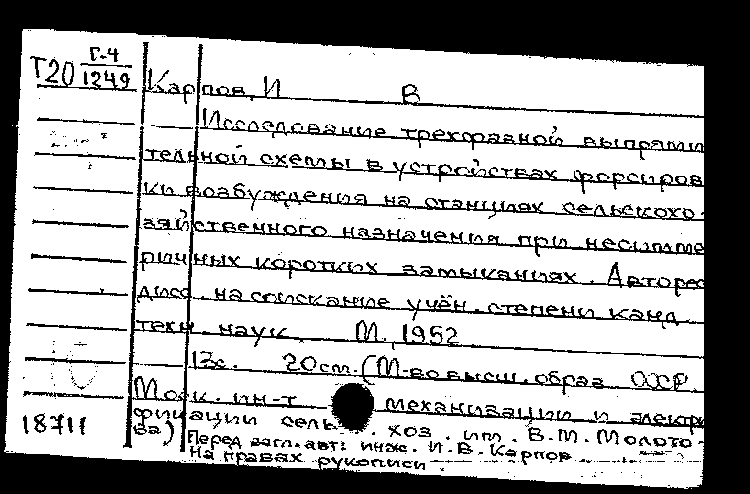 Г-4
Т20 1249
Карпов, И В
Исследование трехфазной выпрями
тельной схемы в устройствах форсиров
ки возбуждения на станциях сельскохо-
зяйственного назначения при несимме
ричных коротких замыканиях. Авторе
дисс. на соискание учён. степени канд.
техн. наук. М., 1952
13с. 20 см. (М-во высш. образ. СССР.
Моск. ин-т механизации и электри
фикации сельск. хоз. им. В.М. Молото-
ва)
18711
Перед загл. авт: инж. И.В. Карпов
На правах рукописи.